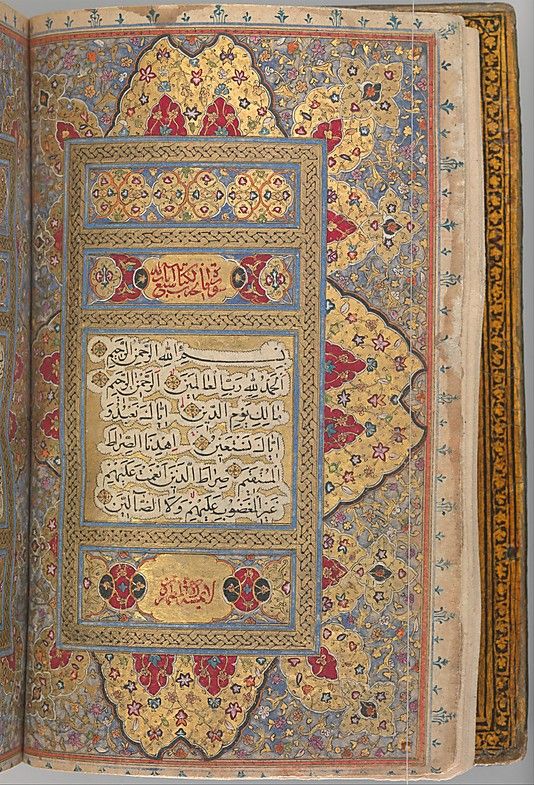 فاتحة الكتاب سبع
بسم الله الرحمن الرحيم
الحمد لله رب العالمين الرحمن الرحيم
مالك يوم الدين اياك نعبد و
اياك نستعين اهدنا الصراط
المستقيم صراط الذين انعمت عليهم
غير المغضوب عليهم ولا الضالين